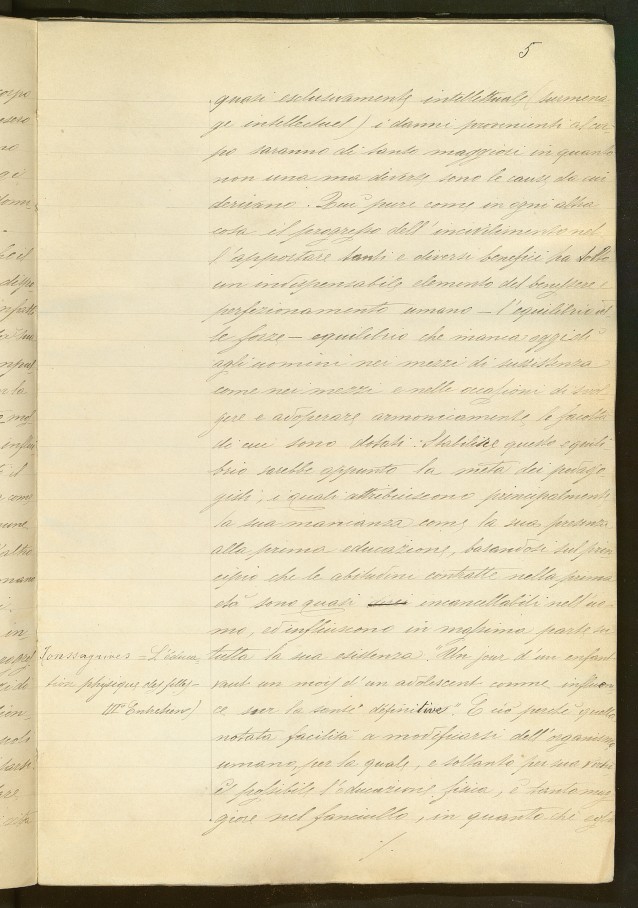 5
quasi esclusivamente intellettuale (surmena-
ge intellectuel) i danni provenienti al cor-
po saranno di tanto maggiori in quanto
non una ma diverse sono le cause da cui
derivano. Qui pure come in ogni altra
cosa il progresso dell'incivilimento nel
l'apportare tanti e diversi benefizi ha tolto
un indispensabile elemento del benessere e
perfezionamento umano — l'equilibrio del
le forze — equilibrio che manca oggidì
agli uomini nei mezzi di sussistenza
come nei mezzi e nelle occasioni di svol
gere e adoperare armonicamente le facoltà
di cui sono dotati. Stabilire questo equili
brio sarebbe appunto la meta dei pedago
gisti, i quali attribuiscono principalmente
la sua mancanza come la sua presenza
alla prima educazione, basandosi sul prin
cipio che le abitudini contratte nella prima
età sono quasi incancellabili nell'uo-
mo, ed influiscono in massima parte su
tutta la sua esistenza. "Un jour d'un enfant
vaut un mois d'un adolescent comme influen
ce sur la santé définitive". E ciò perchè quella
notata facilità a modificarsi dell'organismo
umano, per la quale, e soltanto per
è possibile l'educazione fisica, è tanto mag
giore nel fanciullo, in quanto che egli
./.
Fonssagrives = L'éduca
tion physique des filles -
III° Entretien)